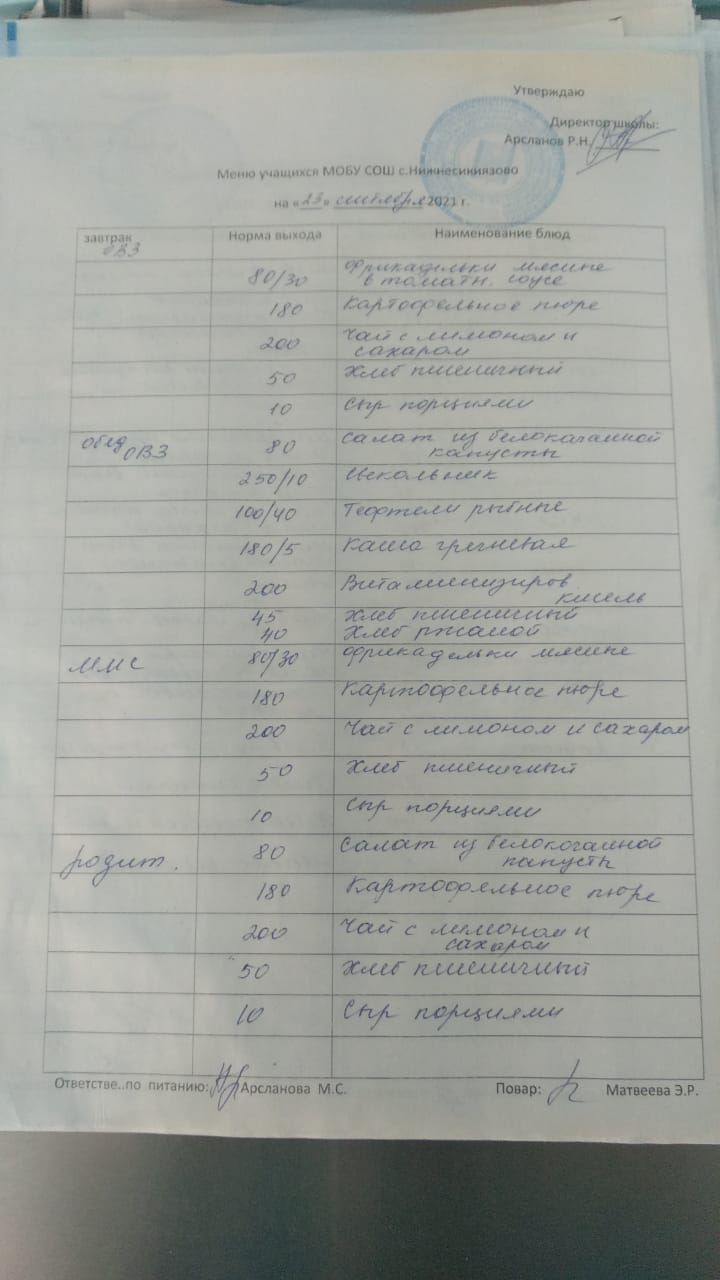 Утверждаю
Директор школы:
Арсланов Р.Н.
Меню учащихся МОБУ СОШ с.Нижнесикиязово
на «23» сентября 2021 г.
завтрак Норма выхода Наименование блюд
ОВЗ
80/30 Фрикадельки мясние
в томатн. соусе
180 Картофельное пюре
200 Чай с лимоном и
сахаром
50 Хлеб пшеничный
10 Сыр порциями
обед ОВЗ 80 Салат из белокачанной
капусты
250/10 Свекольник
100/40 Тефтели рыбные
180/5 Каша гречневая
200 Витаминизиров
кисель
45 Хлеб пшеничный
40 Хлеб ржаной
ММС 80/30 Фрикадельки мясние
180 Картофельное пюре
200 Чай с лимоном и сахаром
50 Хлеб пшеничный
10 Сыр порциями
родит. 80 Салат из белокочанной
капусты
180 Картофельное пюре
200 Чай с лимоном и
сахаром
50 Хлеб пшеничный
10 Сыр порциями
Ответстве..по питанию: Арсланова М.С. Повар: Матвеева Э.Р.